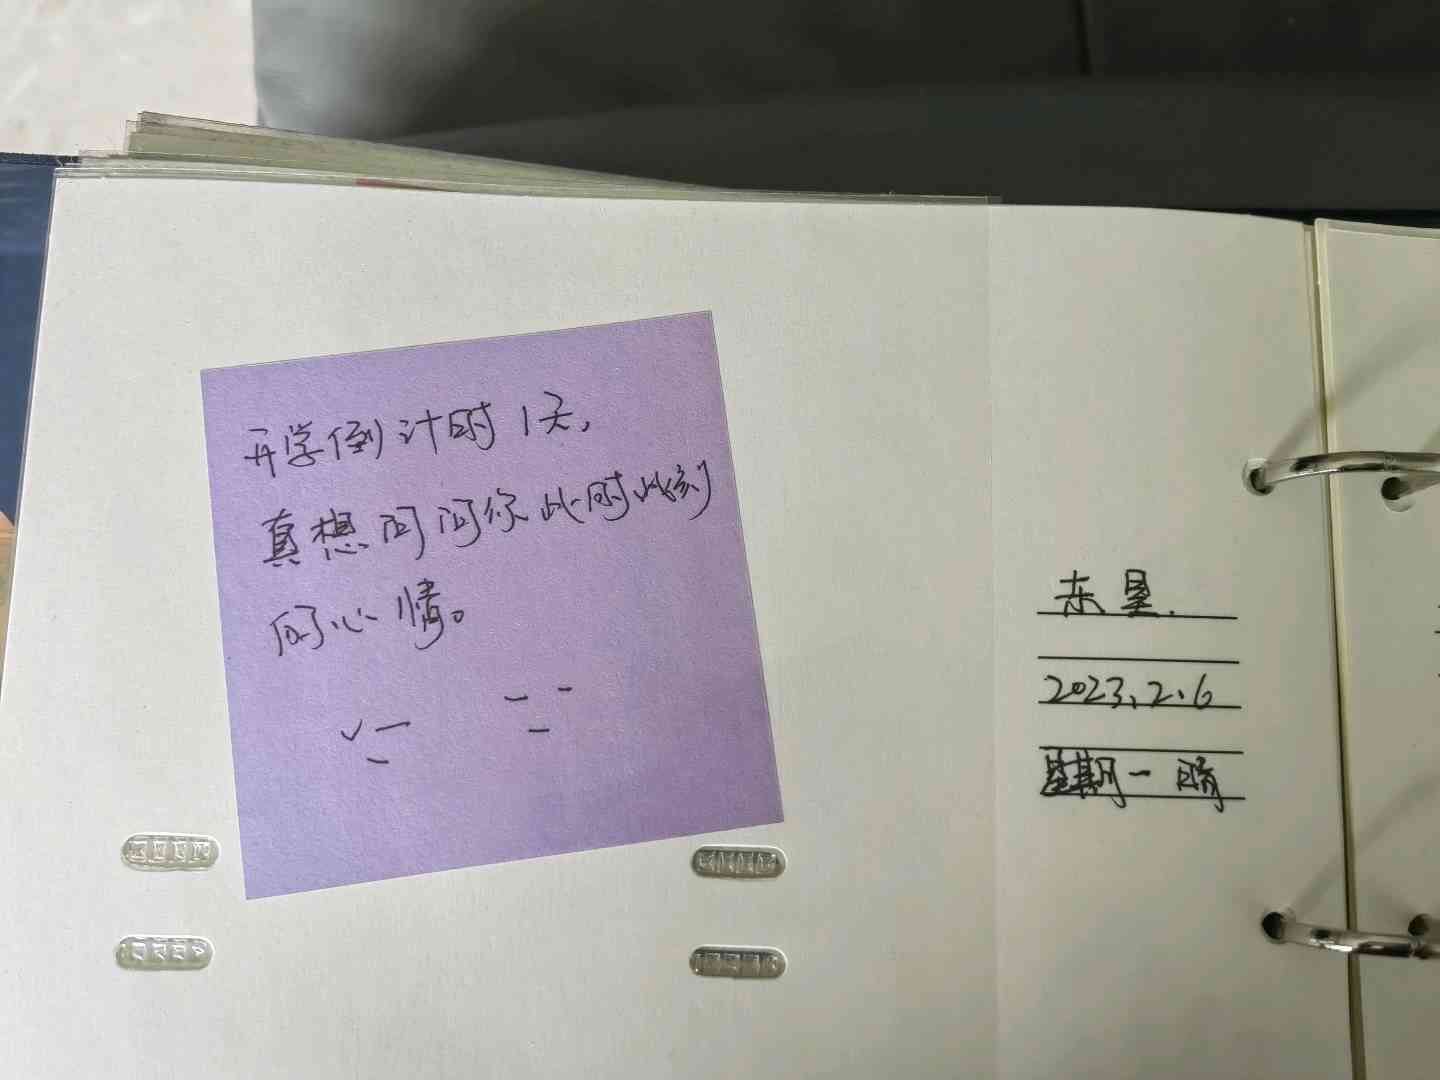 开学倒计时1天，
真想问问你此时此刻
的心情。
东星.
2023.2.6
星期一 晴